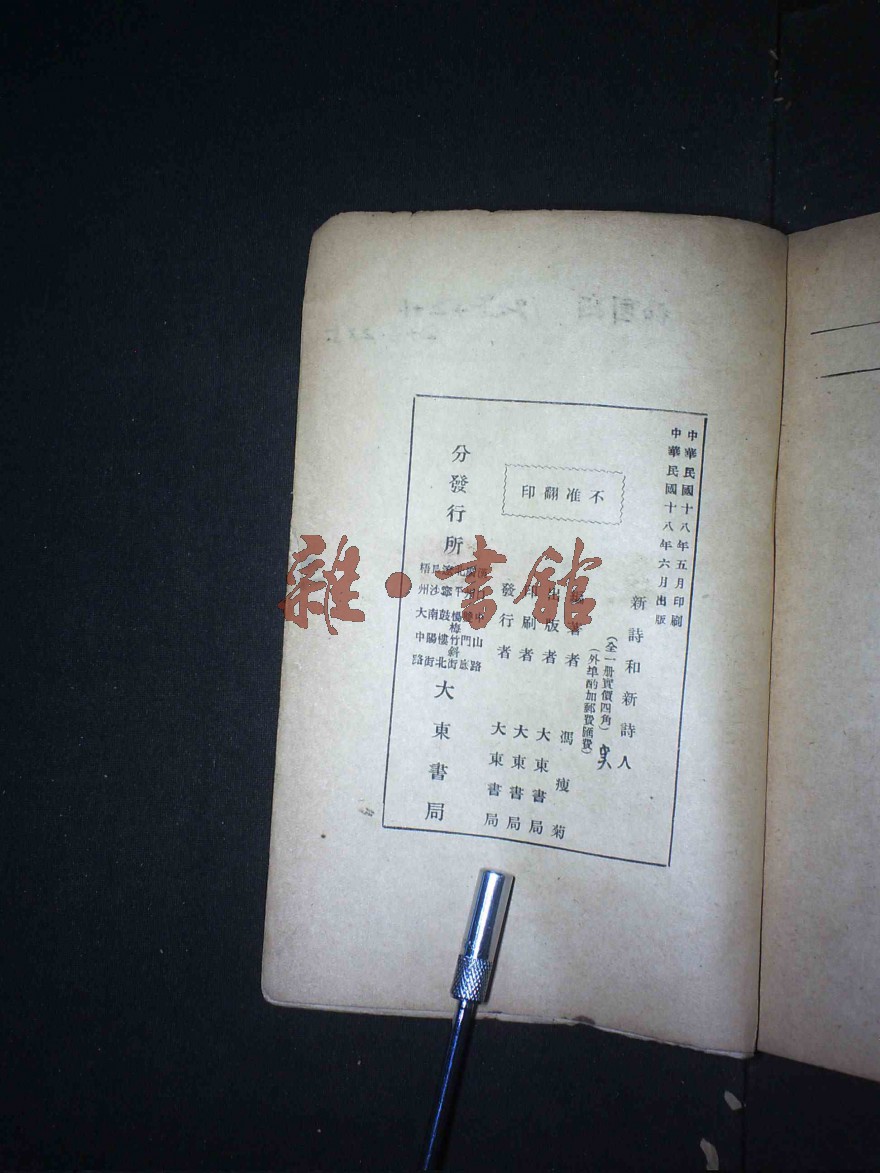 中華民國十八年五月印刷
中華民國十八年六月出版
新詩和新詩人
(全一册實價四角)
(外埠酌加郵費匯費)
編著者 馮瘦菊
出版者 大東書局
印刷者 大東書局
發行者 大東書局
不准翻印
分發行所
大東書局
雜·書館